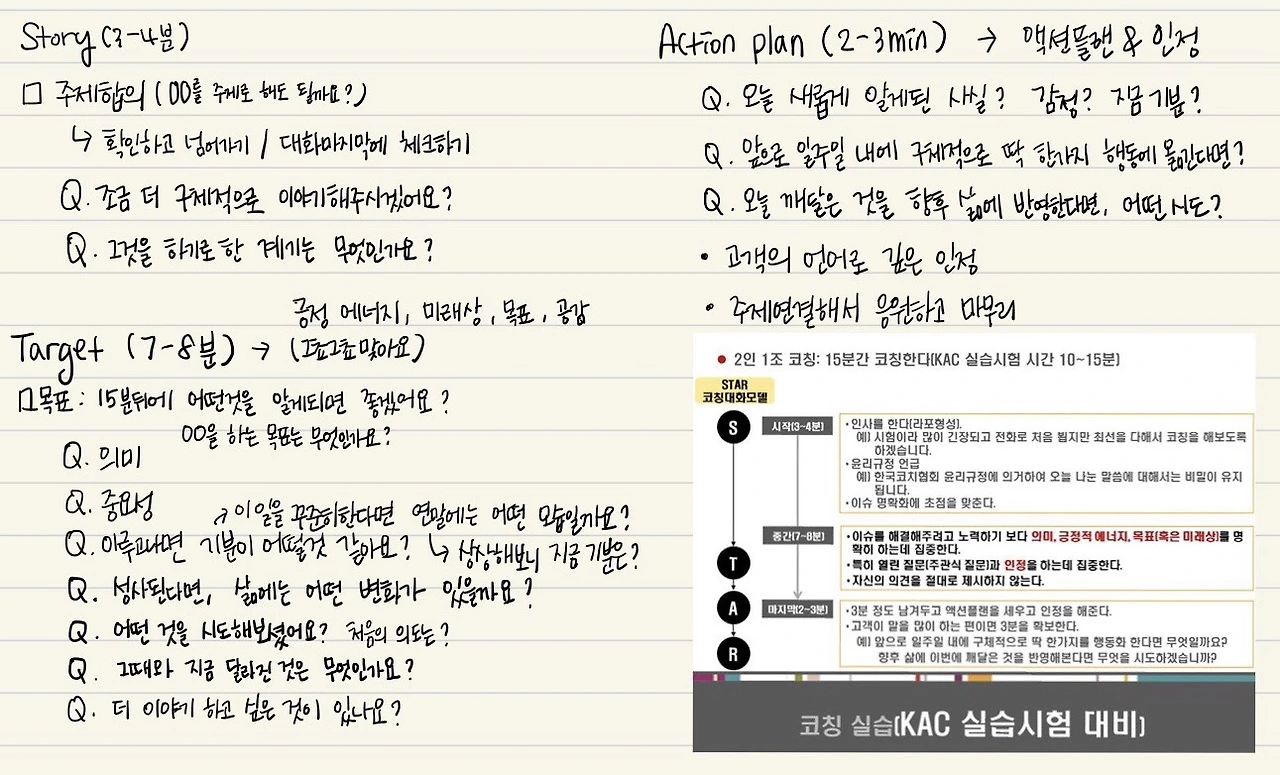 Story (3-4분)
□ 주제합의 (OO를 주제로 해도 될까요?)
↳ 확인하고 넘어가기 / 대화마지막에 체크하기
Q. 조금 더 구체적으로 이야기해주시겠어요?
Q. 그것을 하기로 한 계기는 무엇인가요?
긍정 에너지, 미래상, 목표, 공감
Target (7-8분) → (그쵸그쵸 맞아요)
□목표 : 15분뒤에 어떤것을 알게되면 좋겠어요?
OO을 하는 목표는 무엇인가요?
Q. 의미
Q. 중요성
→ 이 일을 꾸준히한다면 연말에는 어떤 모습일까요?
Q. 이루고나면 기분이 어떨것 같아요? ↳ 상상해보니 지금 기분은?
Q. 성사된다면, 삶에는 어떤 변화가 있을까요?
Q. 어떤 것을 시도해보셨어요? 처음의 의도는?
Q. 그때와 지금 달라진 것은 무엇인가요?
Q. 더 이야기 하고 싶은 것이 있나요?
Action plan (2-3min) → 액션플랜 & 인정
Q. 오늘 새롭게 알게된 사실? 감정? 지금 기분?
Q. 앞으로 일주일 내에 구체적으로 딱 한가지 행동에 옮긴다면?
Q. 오늘 깨달은 것을 향후 삶에 반영한다면, 어떤 시도?
• 고객의 언어로 깊은 인정
• 주제연결해서 응원하고 마무리
• 2인 1조 코칭: 15분간 코칭한다(KAC 실습시험 시간 10~15분)
STAR
코칭대화모델
S
시작(3~4분)
•인사를 한다(라포형성).
예) 시험이라 많이 긴장되고 전화로 처음 뵙지만 최선을 다해서 코칭을 해보도록
하겠습니다.
•윤리규정 언급
예) 한국코치협회 윤리규정에 의거하여 오늘 나눈 말씀에 대해서는 비밀이 유지
됩니다.
•이슈 명확화에 초점을 맞춘다.
T
중간(7~8분)
•이슈를 해결해주려고 노력하기 보다 의미, 긍정적 에너지, 목표(혹은 미래상)를 명
확히 하는데 집중한다.
•특히 열린 질문(주관식 질문)과 인정을 하는데 집중한다.
•자신의 의견을 절대로 제시하지 않는다.
A
마지막(2~3분)
•3분 정도 남겨두고 액션플랜을 세우고 인정을 해준다.
•고객이 말을 많이 하는 편이면 3분을 확보한다.
예) 앞으로 일주일 내에 구체적으로 딱 한가지를 행동화 한다면 무엇일까요?
향후 삶에 이번에 깨달은 것을 반영해본다면 무엇을 시도하겠습니까?
R
코칭 실습(KAC 실습시험 대비)